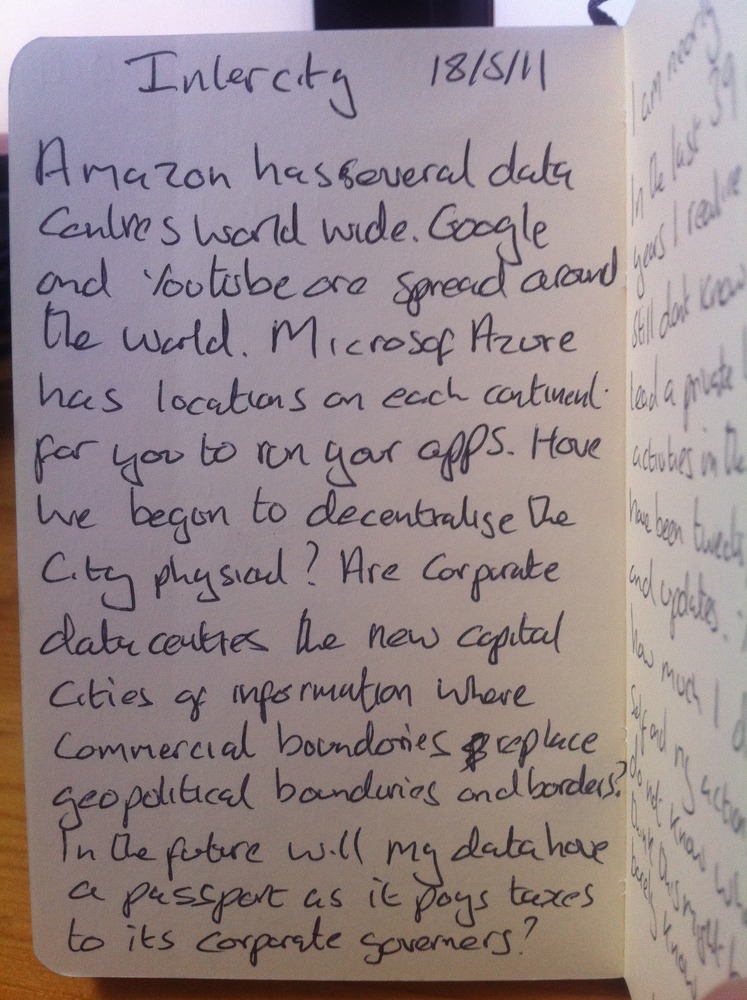 Intercity 18/5/11
Amazon has several data
Centres world wide. Google
and Youtube are spread around
the world. Microsof Azure
has locations on each continent.
for you to run your apps. Have
we began to decentralise the
City physical? Are Corporate
data centres the new capital
Cities of information where
Commercial boundories replace
geopolitical boundaries and borders?
In the future will my data have
a passport as it pays taxes
to its corporate governers?
I am nearly
In the last 39
years I realise
Still dont know
lead a private
activities in the
have been tweets
and updates.
how much I
Self and my action
do not know
think this might
barely know